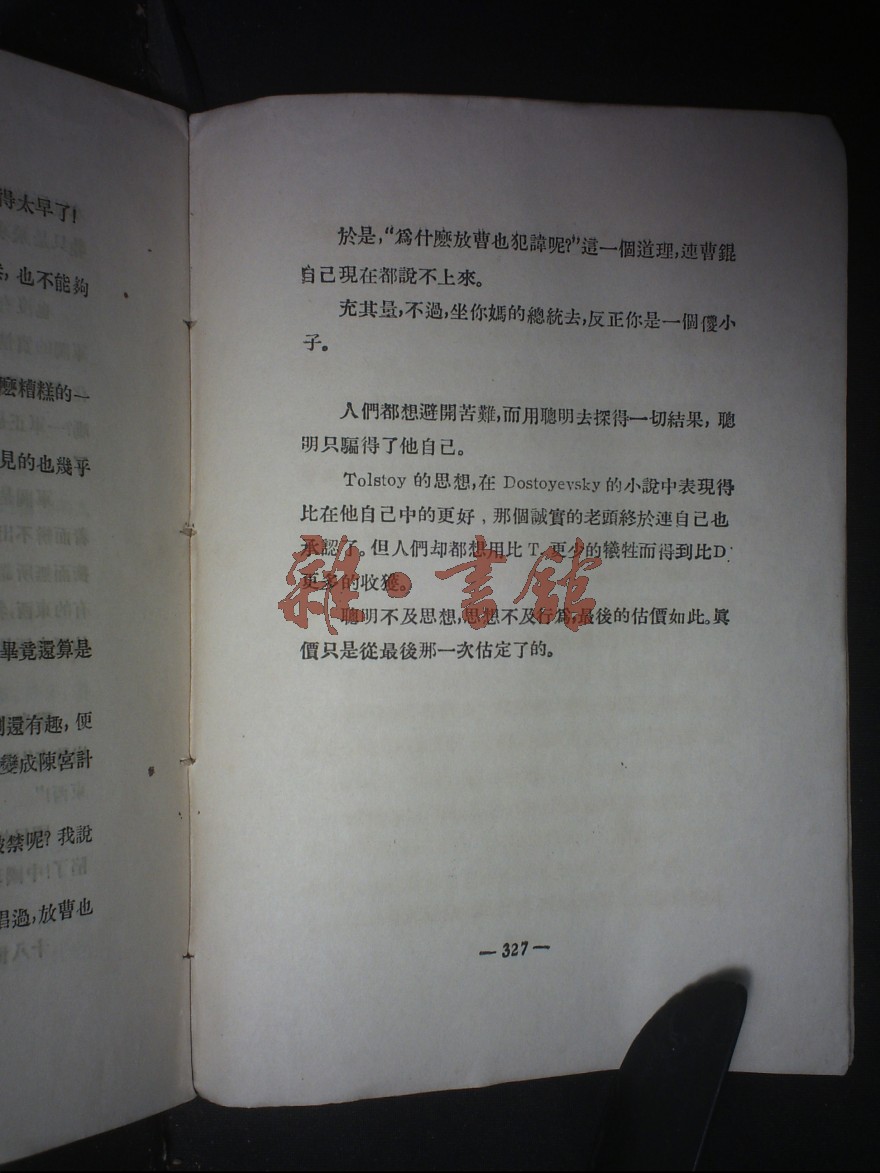 得太早了!
也不能夠
麽糟糕的一
見的也幾乎
畢竟還算是
還有趣,便
變成陳宮計
禁呢?我說
唱過,放曹也
於是,“爲什麽放曹也犯諱呢?”這一個道理,連曹錕
自己現在都說不上來。
充其量,不過,坐你媽的總統去,反正你是一個傻小
子。
人們都想避開苦難,而用聰明去探得一切結果,聰
明只騙得了他自己。
Tolstoy 的思想,在 Dostoyevsky 的小說中表現得
比在他自己中的更好,那個誠實的老頭終於連自己也
承認了。但人們却都想用比T.更少的犧牲而得到比D.
更多的收獲。
聰明不及思想,思想不及行爲,最後的估價如此。眞
價只是從最後那一次估定了的。
雜·書館
—327—